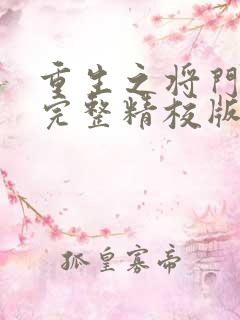 重生之将門
完整精校版
孤皇寡帝